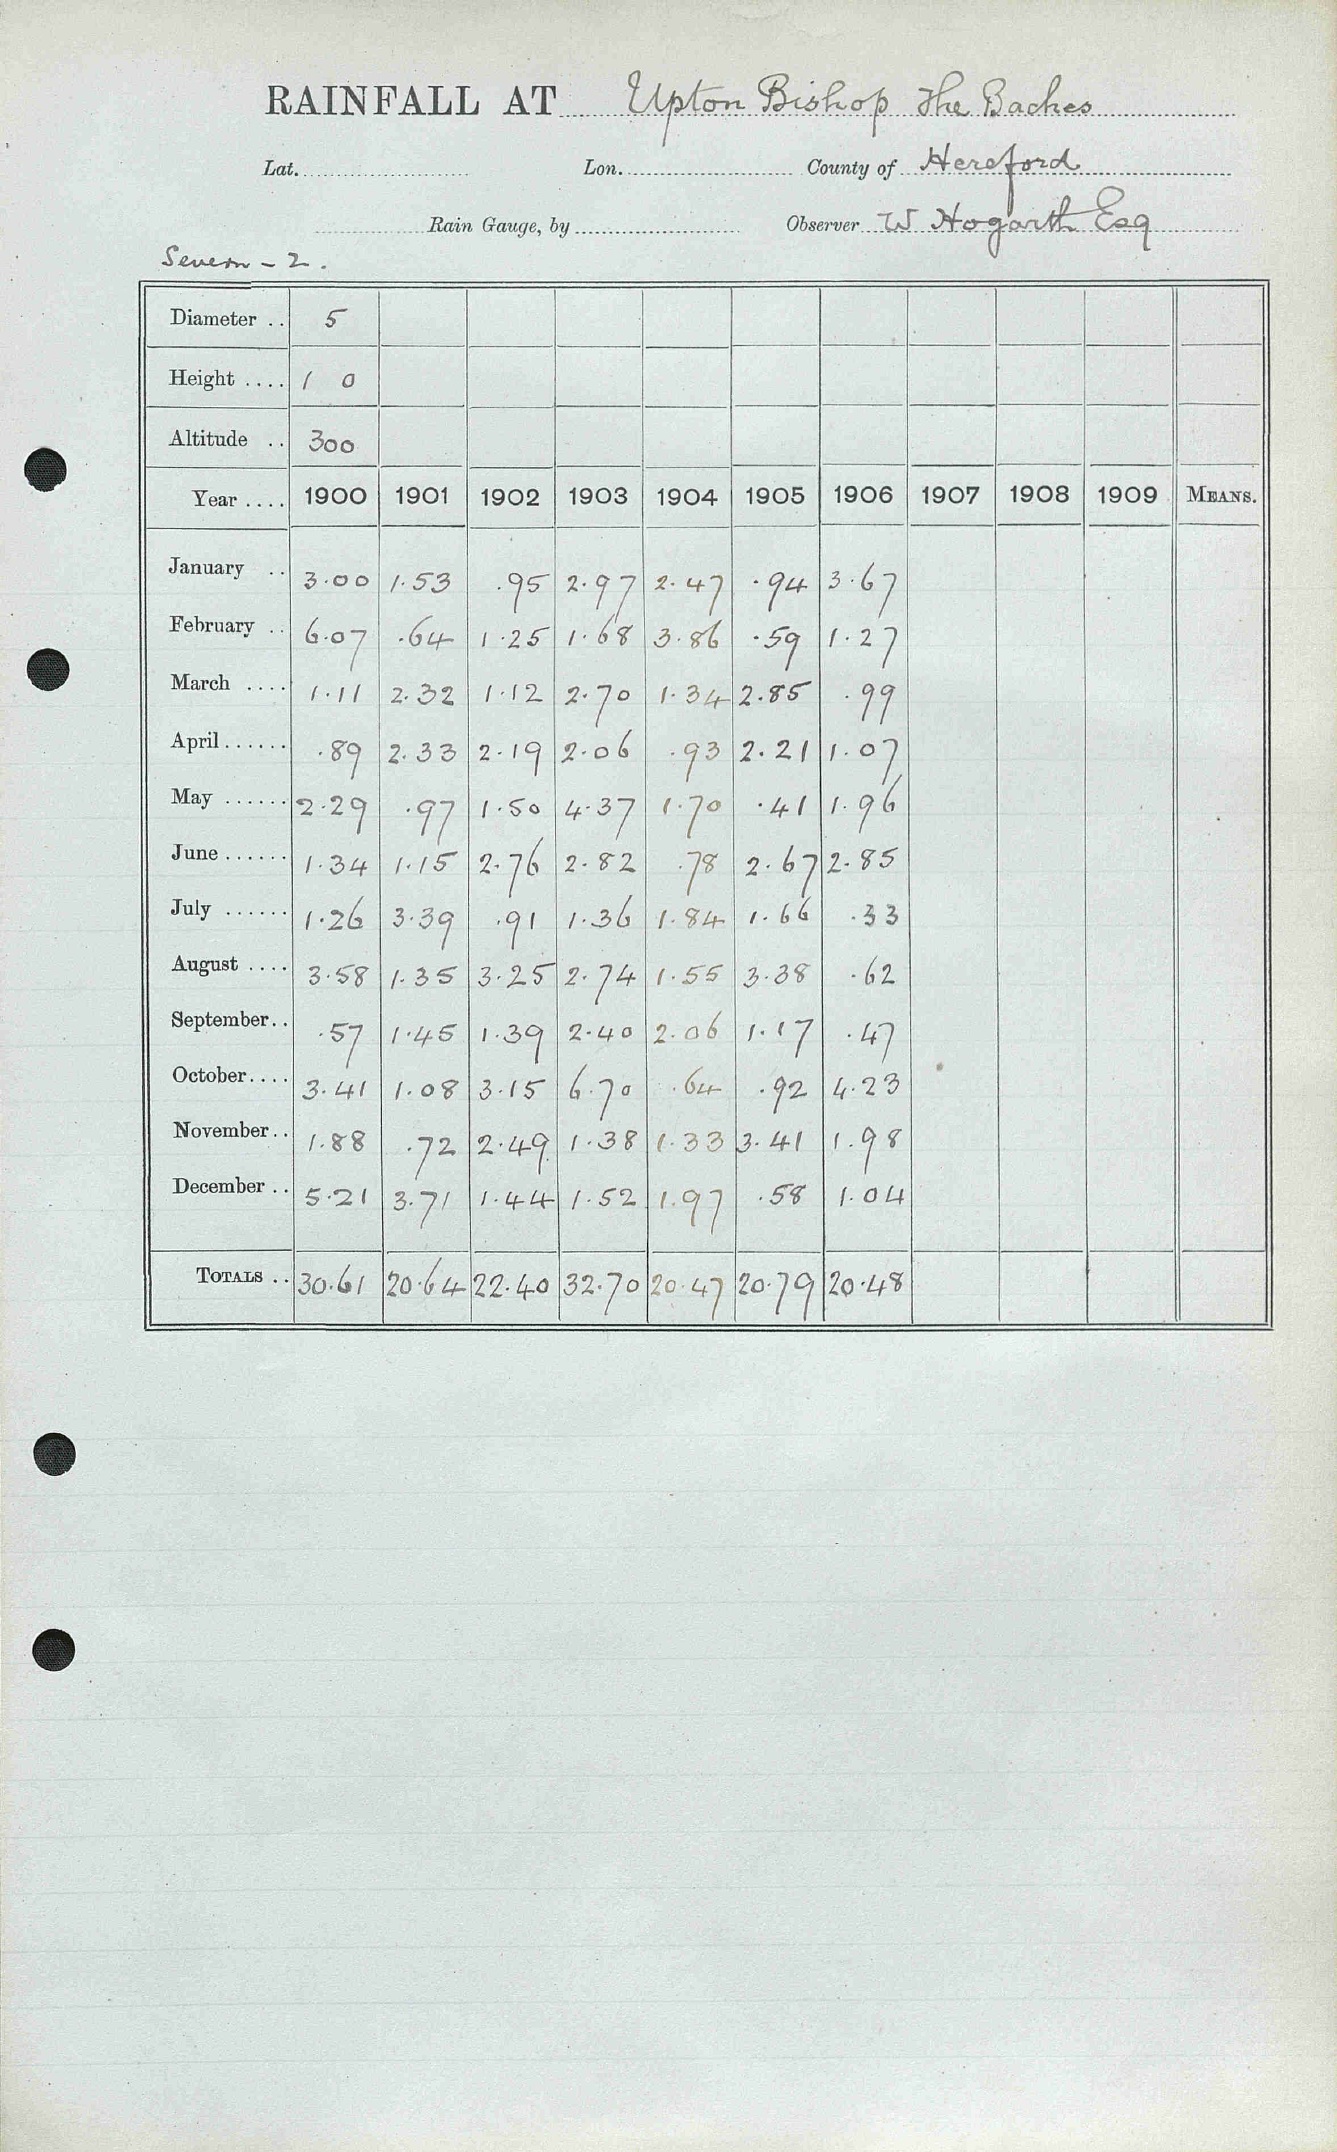 RAINFALL AT Upton Bishop The Baches
Lat. Lon. County of Hereford
Rain Gauge, by Observer W Hogarth Esq
Severn - 2.
Diameter .. 5
Height .... 1 0
Altitude .. 300
Year .... 1900 1901 1902 1903 1904 1905 1906 1907 1908 1909 MEANS.
January .. 3.00 1.53 .95 2.97 2.47 .94 3.67
February .. 6.07 .64 1.25 1.68 3.86 .59 1.27
March .... 1.11 2.32 1.12 2.70 1.34 2.85 .99
April...... .89 2.33 2.19 2.06 .93 2.21 1.07
May ...... 2.29 .97 1.50 4.37 1.70 .41 1.96
June...... 1.34 1.15 2.76 2.82 .78 2.67 2.85
July ...... 1.26 3.39 .91 1.36 1.84 1.66 .33
August .... 3.58 1.35 3.25 2.74 1.55 3.38 .62
September.. .57 1.45 1.39 2.40 2.06 1.17 .47
October.... 3.41 1.08 3.15 6.70 .64 .92 4.23
November.. 1.88 .72 2.49 1.38 1.33 3.41 1.98
December .. 5.21 3.71 1.44 1.52 1.97 .58 1.04
TOTALS .. 30.61 20.64 22.40 32.70 20.47 20.79 20.48